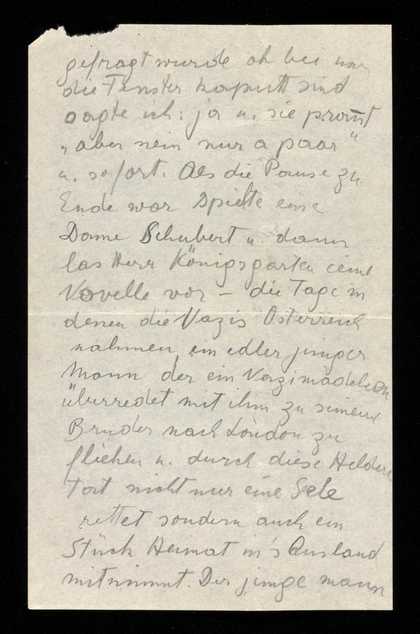 gefragt wurde ob bei uns
die Fenster kaputt sind
sagte ich: ja u. sie prompt
„aber nein nur a paar"
u. so fort. Als die Pause zu
Ende war spielte eine
Dame Schubert u. dann
las Herr Königsgarten eine
Novelle vor – die Tage in
denen die Nazis Österreich
nahmen, ein edler junger
Mann der ein Nazimädchen
überredet mit ihm zu seinem
Bruder nach London zu
fliehen u. durch diese Helden
tat nicht nur eine Sele
rettet sondern auch ein
Stück Heimat in's Ausland
mitnimmt. Der junge Mann